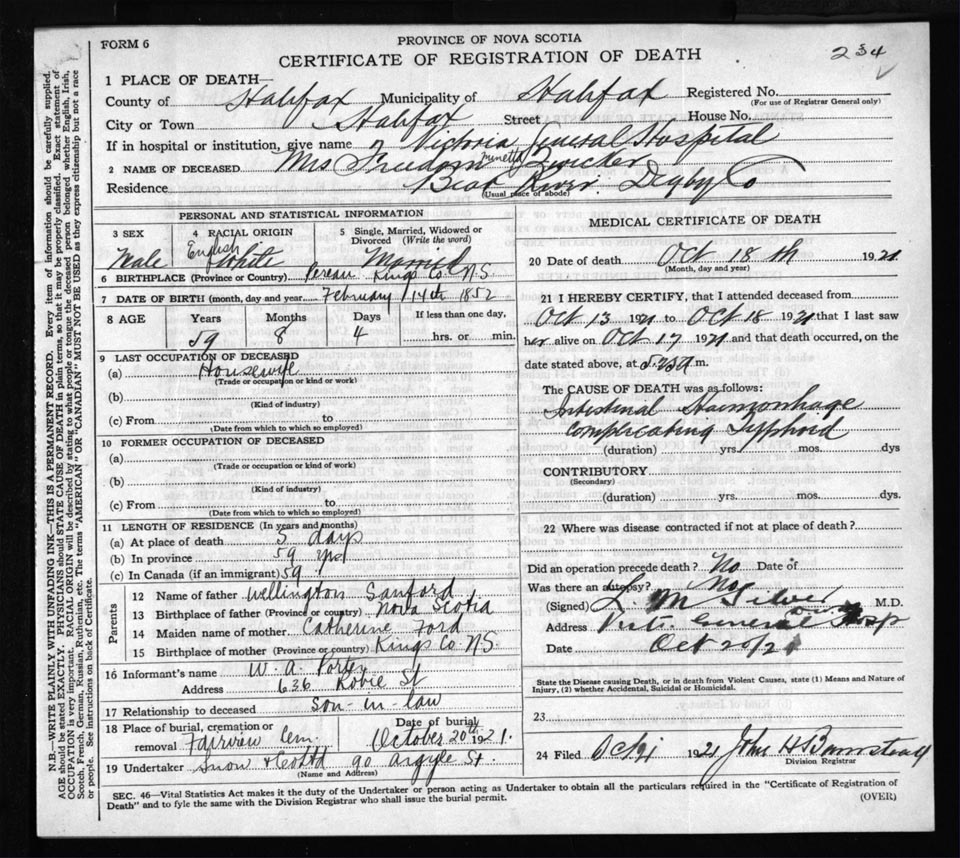 FORM 6
PROVINCE OF NOVA SCOTIA
CERTIFICATE OF REGISTRATION OF DEATH
234
1 PLACE OF DEATH—
County of Halifax Municipality of Halifax Registered No.
(For use of Registrar General only)
City or Town Halifax Street House No.
If in hospital or institution, give name Victoria General Hospital
2 NAME OF DECEASED Mrs Zwicker
Residence Bear River Digby Co
(Usual place of abode)
PERSONAL AND STATISTICAL INFORMATION
3 SEX
4 RACIAL ORIGIN
5 Single, Married, Widowed or Divorced (Write the word)
English White Married
6 BIRTHPLACE (Province or Country) Pereau Kings Co N.S.
7 DATE OF BIRTH (month, day and year) February 14th 1852
8 AGE Years Months Days If less than one day,
59 8 4 hrs. or min.
9 LAST OCCUPATION OF DECEASED
(a) Housewife
(Trade or occupation or kind or work)
(b)
(Kind of industry)
(c) From to
(Date from which to which so employed)
10 FORMER OCCUPATION OF DECEASED
(a)
(Trade or occupation or kind of work)
(b)
(Kind of industry)
(c) From to
(Date from which to which so employed)
11 LENGTH OF RESIDENCE (In years and months)
(a) At place of death 5 days
(b) In province 59 yrs
(c) In Canada (if an immigrant) 59
Parents
12 Name of father Wellington Sanford
13 Birthplace of father (Province or country) Nova Scotia
14 Maiden name of mother Catherine Ford
15 Birthplace of mother (Province or country) Kings Co N.S.
16 Informant's name W. A.
Address 636 Robie St
17 Relationship to deceased son-in-law
18 Place of burial, cremation or removal Fairview Cem.
Date of burial October 20th 1921.
19 Undertaker Snow & Co Ltd 90 Argyle St.
(Name and Address)
MEDICAL CERTIFICATE OF DEATH
20 Date of death Oct 18th 1921
(Month, day and year)
21 I HEREBY CERTIFY, that I attended deceased from
Oct 13 1921 to Oct 18 1921 that I last saw
her alive on Oct 17 1921 and that death occurred, on the
date stated above, at m.
The CAUSE OF DEATH was as follows:
Intestinal Haemorrhage
complicating Typhoid
(duration) yrs. mos. dys
CONTRIBUTORY
(Secondary)
(duration) yrs. mos. dys.
22 Where was disease contracted if not at place of death?
Did an operation precede death? No Date of
Was there an autopsy? No
(Signed) M.D.
Address Vict. General Hosp
Date Oct 20/21
State the Disease causing Death, or in death from Violent Causes, state (1) Means and Nature of
Injury, (2) whether Accidental, Suicidal or Homicidal.
23
24 Filed 1921 John H Barnstead
Division Registrar
SEC. 46—Vital Statistics Act makes it the duty of the Undertaker or person acting as Undertaker to obtain all the particulars required in the "Certificate of Registration of
Death" and to fyle the same with the Division Registrar who shall issue the burial permit.
(OVER)
N.B.—WRITE PLAINLY WITH UNFADING INK—THIS IS A PERMANENT RECORD. Every item of information should be carefully supplied.
AGE should be stated EXACTLY. PHYSICIANS should STATE CAUSE OF DEATH in plain terms, so that it may be properly classified. Exact statement of
OCCUPATION is very important. RACIAL ORIGIN will be described by stating to what people or tongue the deceased person belonged, whether English, Irish,
Scotch, French, German, Russian, Ruthenian, etc. The terms "AMERICAN" OR "CANADIAN" MUST NOT BE USED as they express citizenship but not a race
or people. See instructions on back of Certificate.